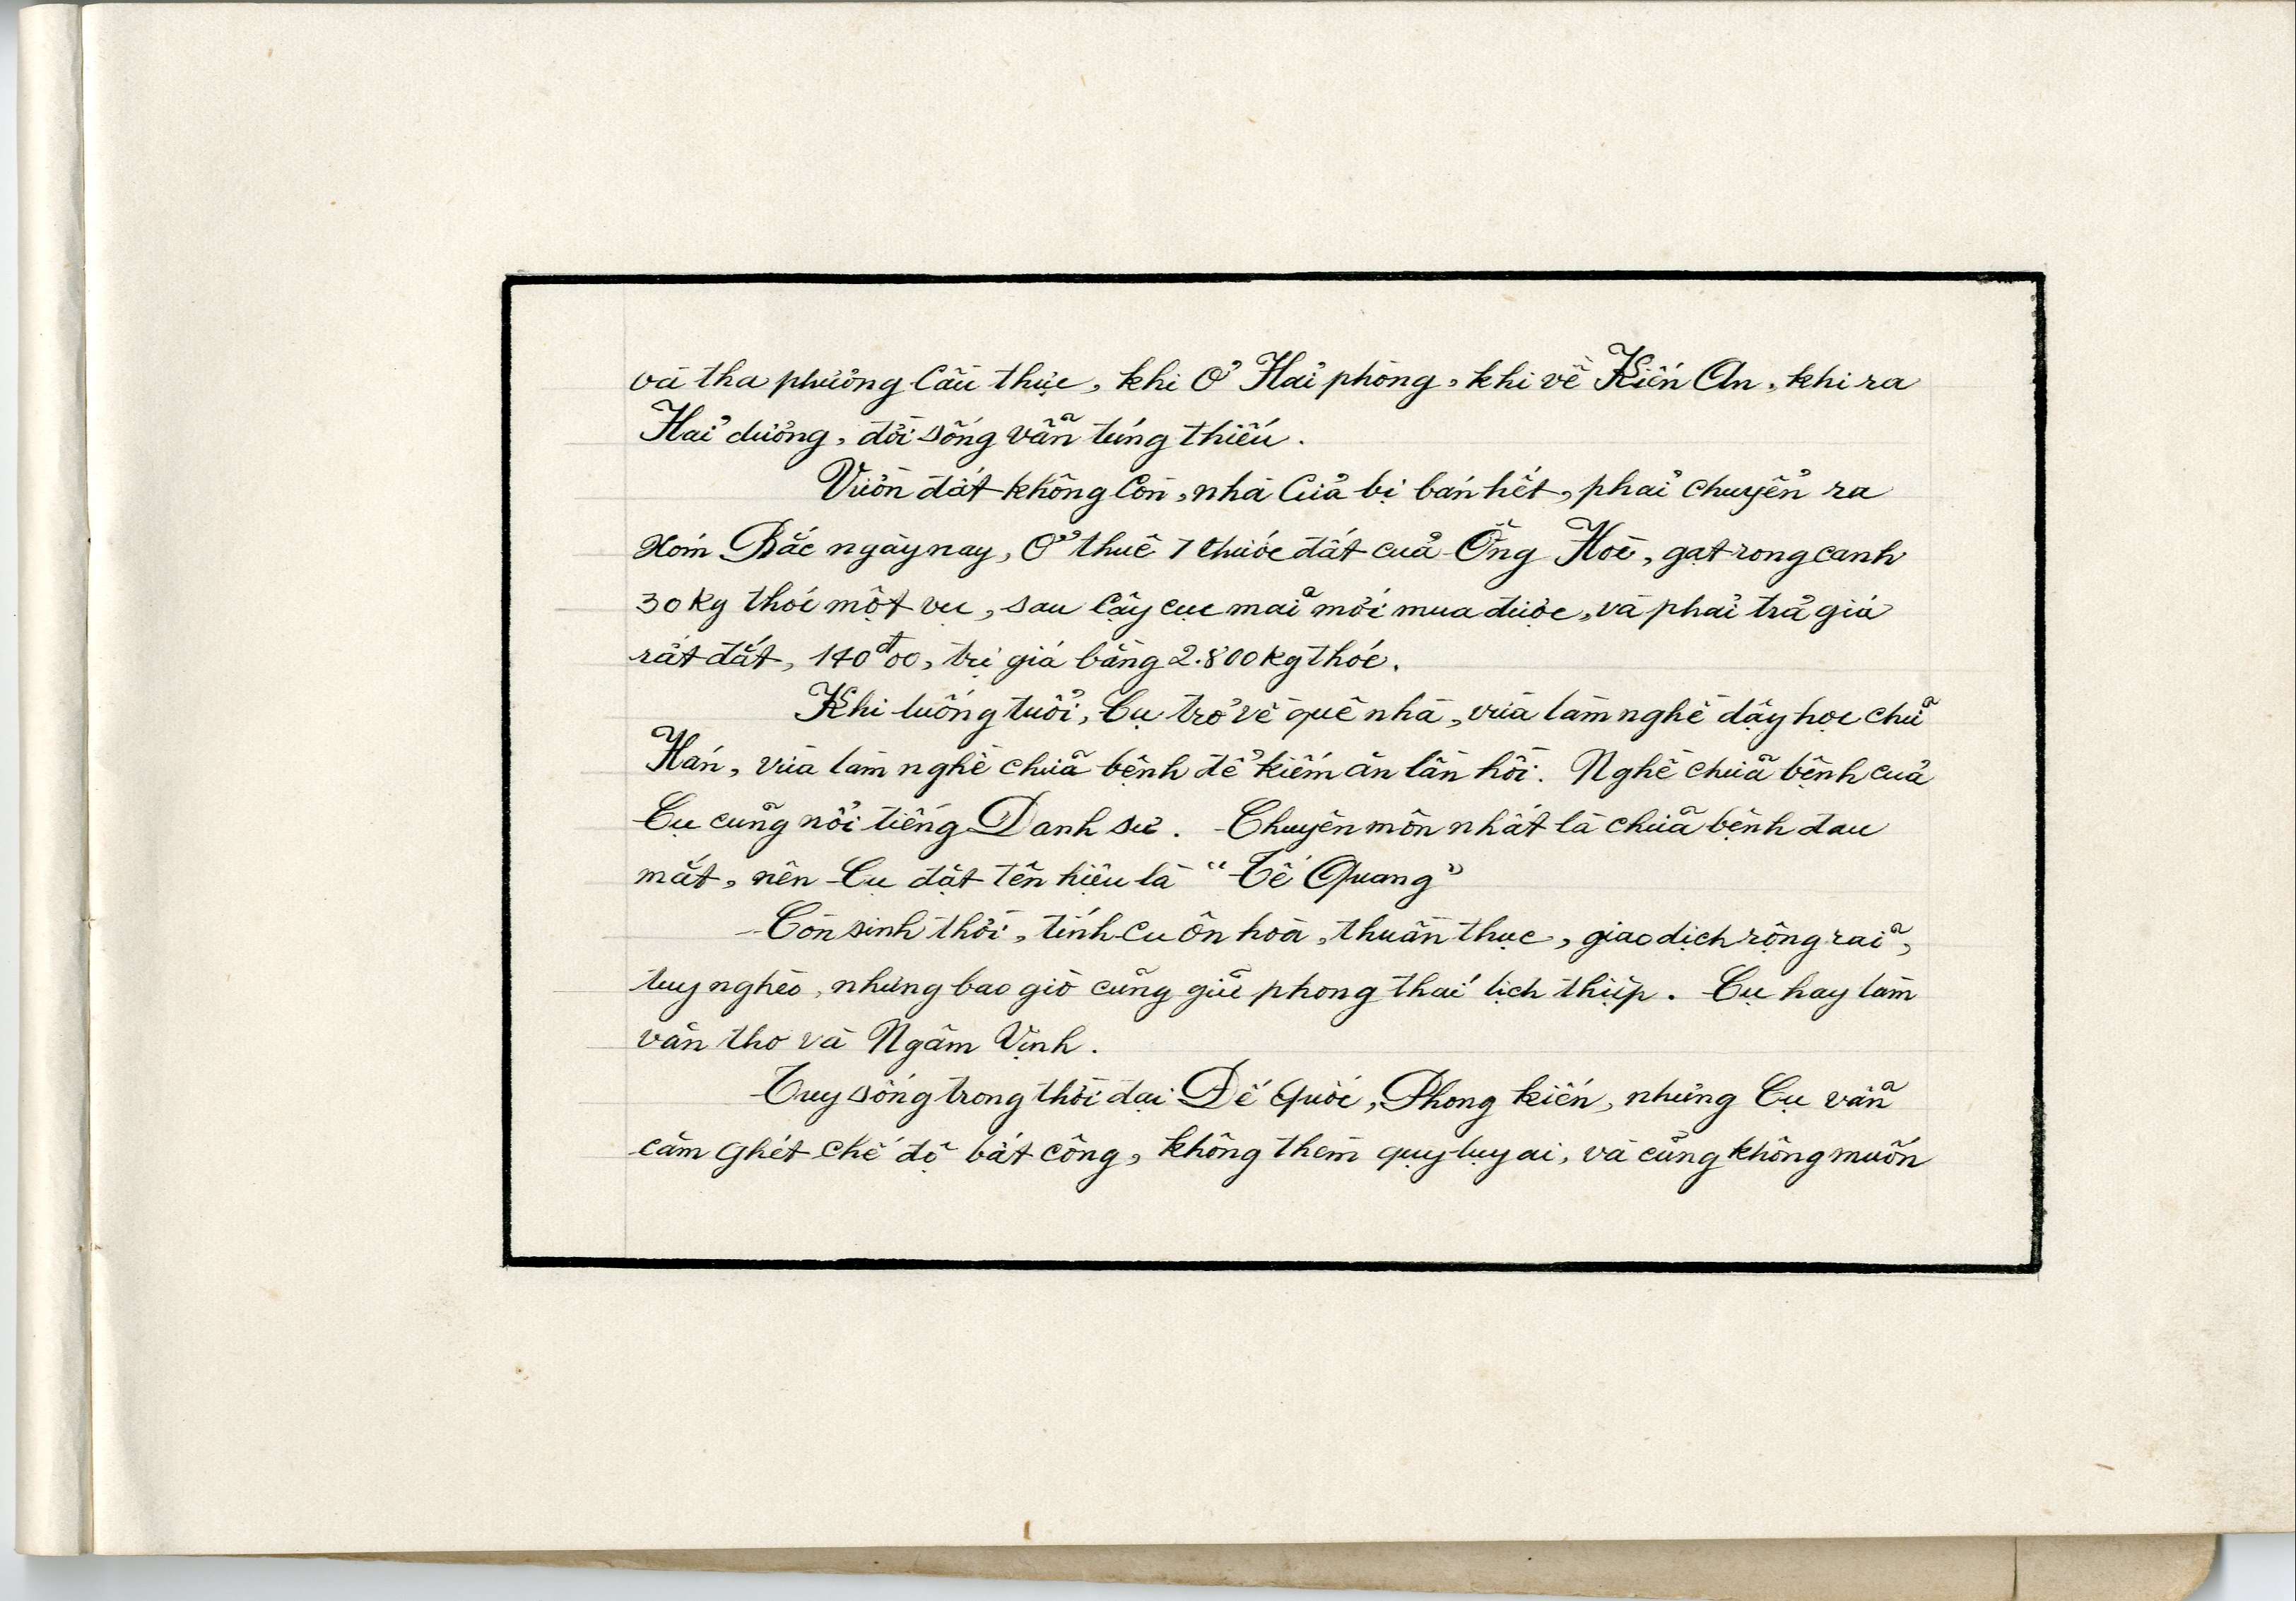 và tha phương Cầu thực, khi Ở Hải phòng, khi về Kiến An, khi ra
Hải dương, đời sống vẫn túng thiếu.
Vườn đất không Còn, nhà Cửa bị bán hết, phải chuyển ra
Xóm Bắc ngày nay, Ở thuê 7 thước đất của Ông Hoè, gạt rong canh
30kg thóc một vụ, sau Cậy cục mãi mới mua được, và phải trả giá
rất đắt, 140đ00, trị giá bằng 2.800kg thóc.
Khi luống tuổi, Cụ trở về quê nhà, vừa làm nghề dậy học chữ
Hán, vừa làm nghề chữa bệnh để kiếm ăn lần hồi. Nghề chữa bệnh của
Cụ cũng nổi tiếng Danh sư. Chuyên môn nhất là chữa bệnh đau
mắt, nên Cụ đặt tên hiệu là "Tế Quang"
Còn sinh thời, tính cụ ôn hoà, thuần thục, giao dịch rộng rãi,
tuy nghèo, nhưng bao giờ cũng giữ phong thái lịch thiệp. Cụ hay làm
văn thơ và Ngâm Vịnh.
Tuy sống trong thời đại Đế Quốc, Phong kiến, nhưng Cụ vẫn
căm Ghét Chế độ bất công, không thèm quỵ lụy ai, và cũng không muốn